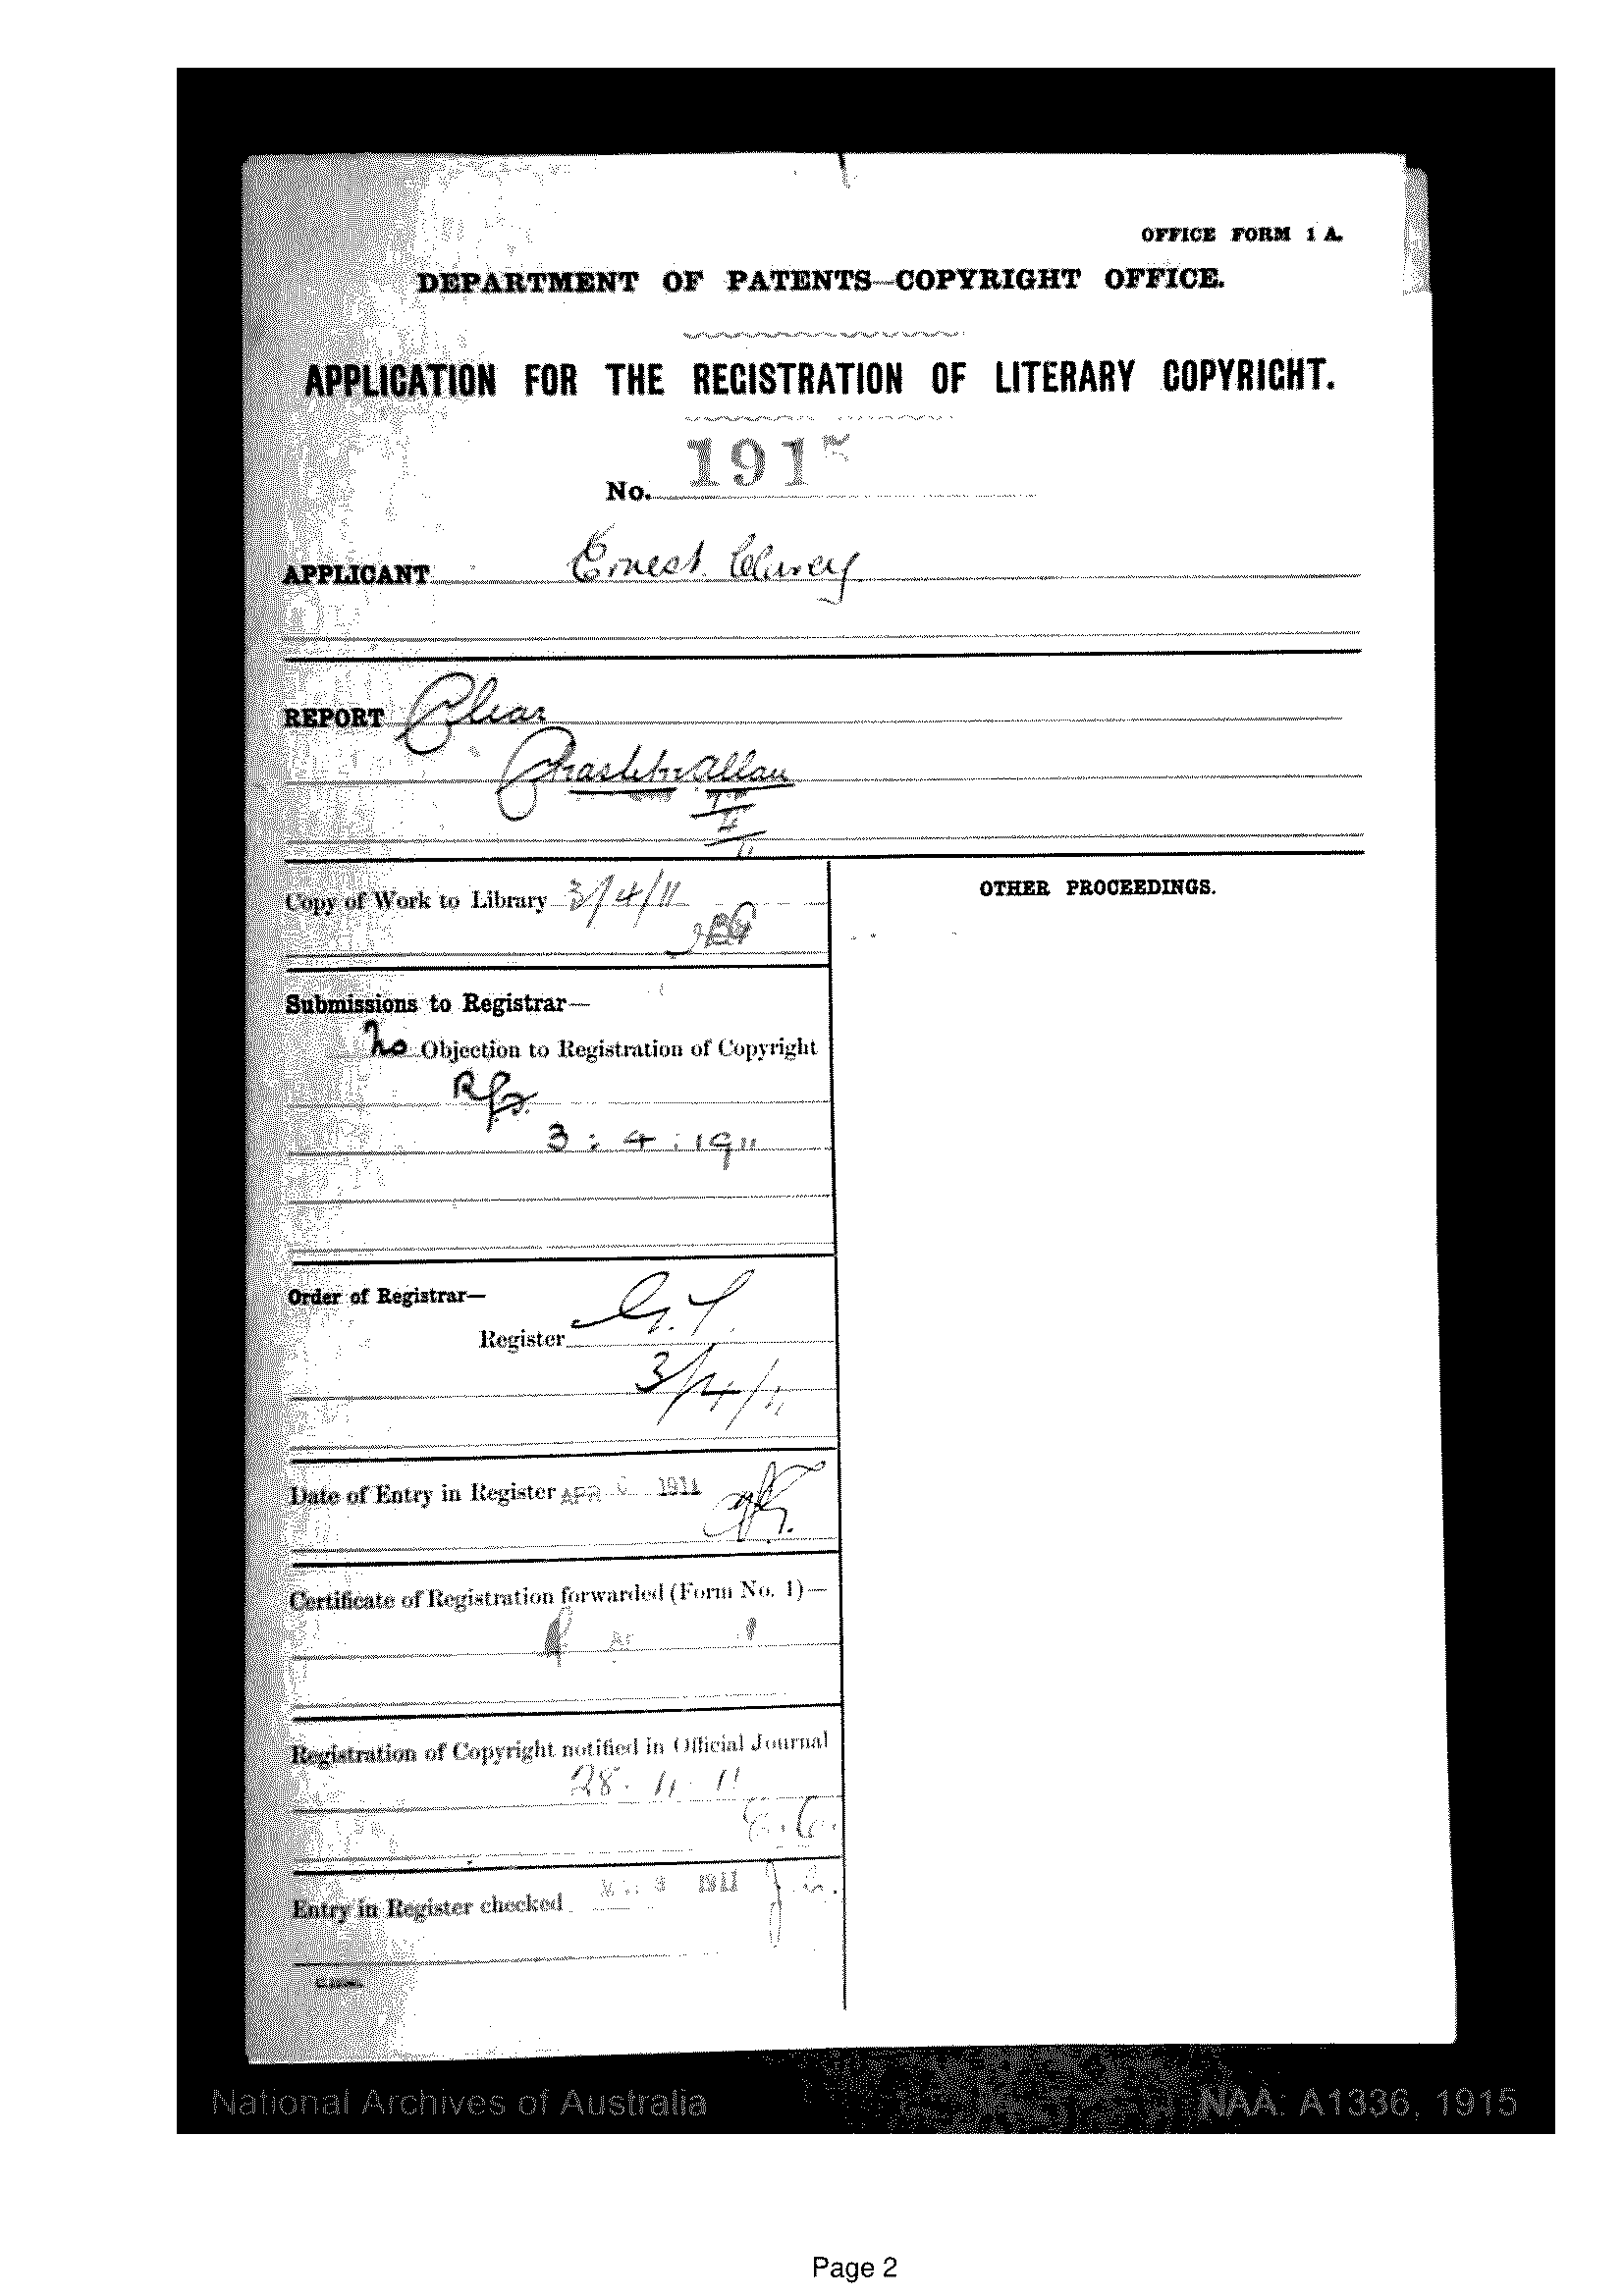 OFFICE FORM 1 A.
DEPARTMENT OF PATENTS—COPYRIGHT OFFICE.
APPLICATION FOR THE REGISTRATION OF LITERARY COPYRIGHT.
No. 1915
APPLICANT Ernest
REPORT Clear
Allan
Copy of Work to Library 3/4/11
OTHER PROCEEDINGS.
Submissions to Registrar—
No Objection to Registration of Copyright
3 : 4 : 1911
Order of Registrar—
Register
3/4/11
Date of Entry in Register APR 1911
Certificate of Registration forwarded (Form No. 1)—
Registration of Copyright notified in Official Journal
28
Entry in Register checked 1911
National Archives of Australia NAA: A1336, 1915
Page 2